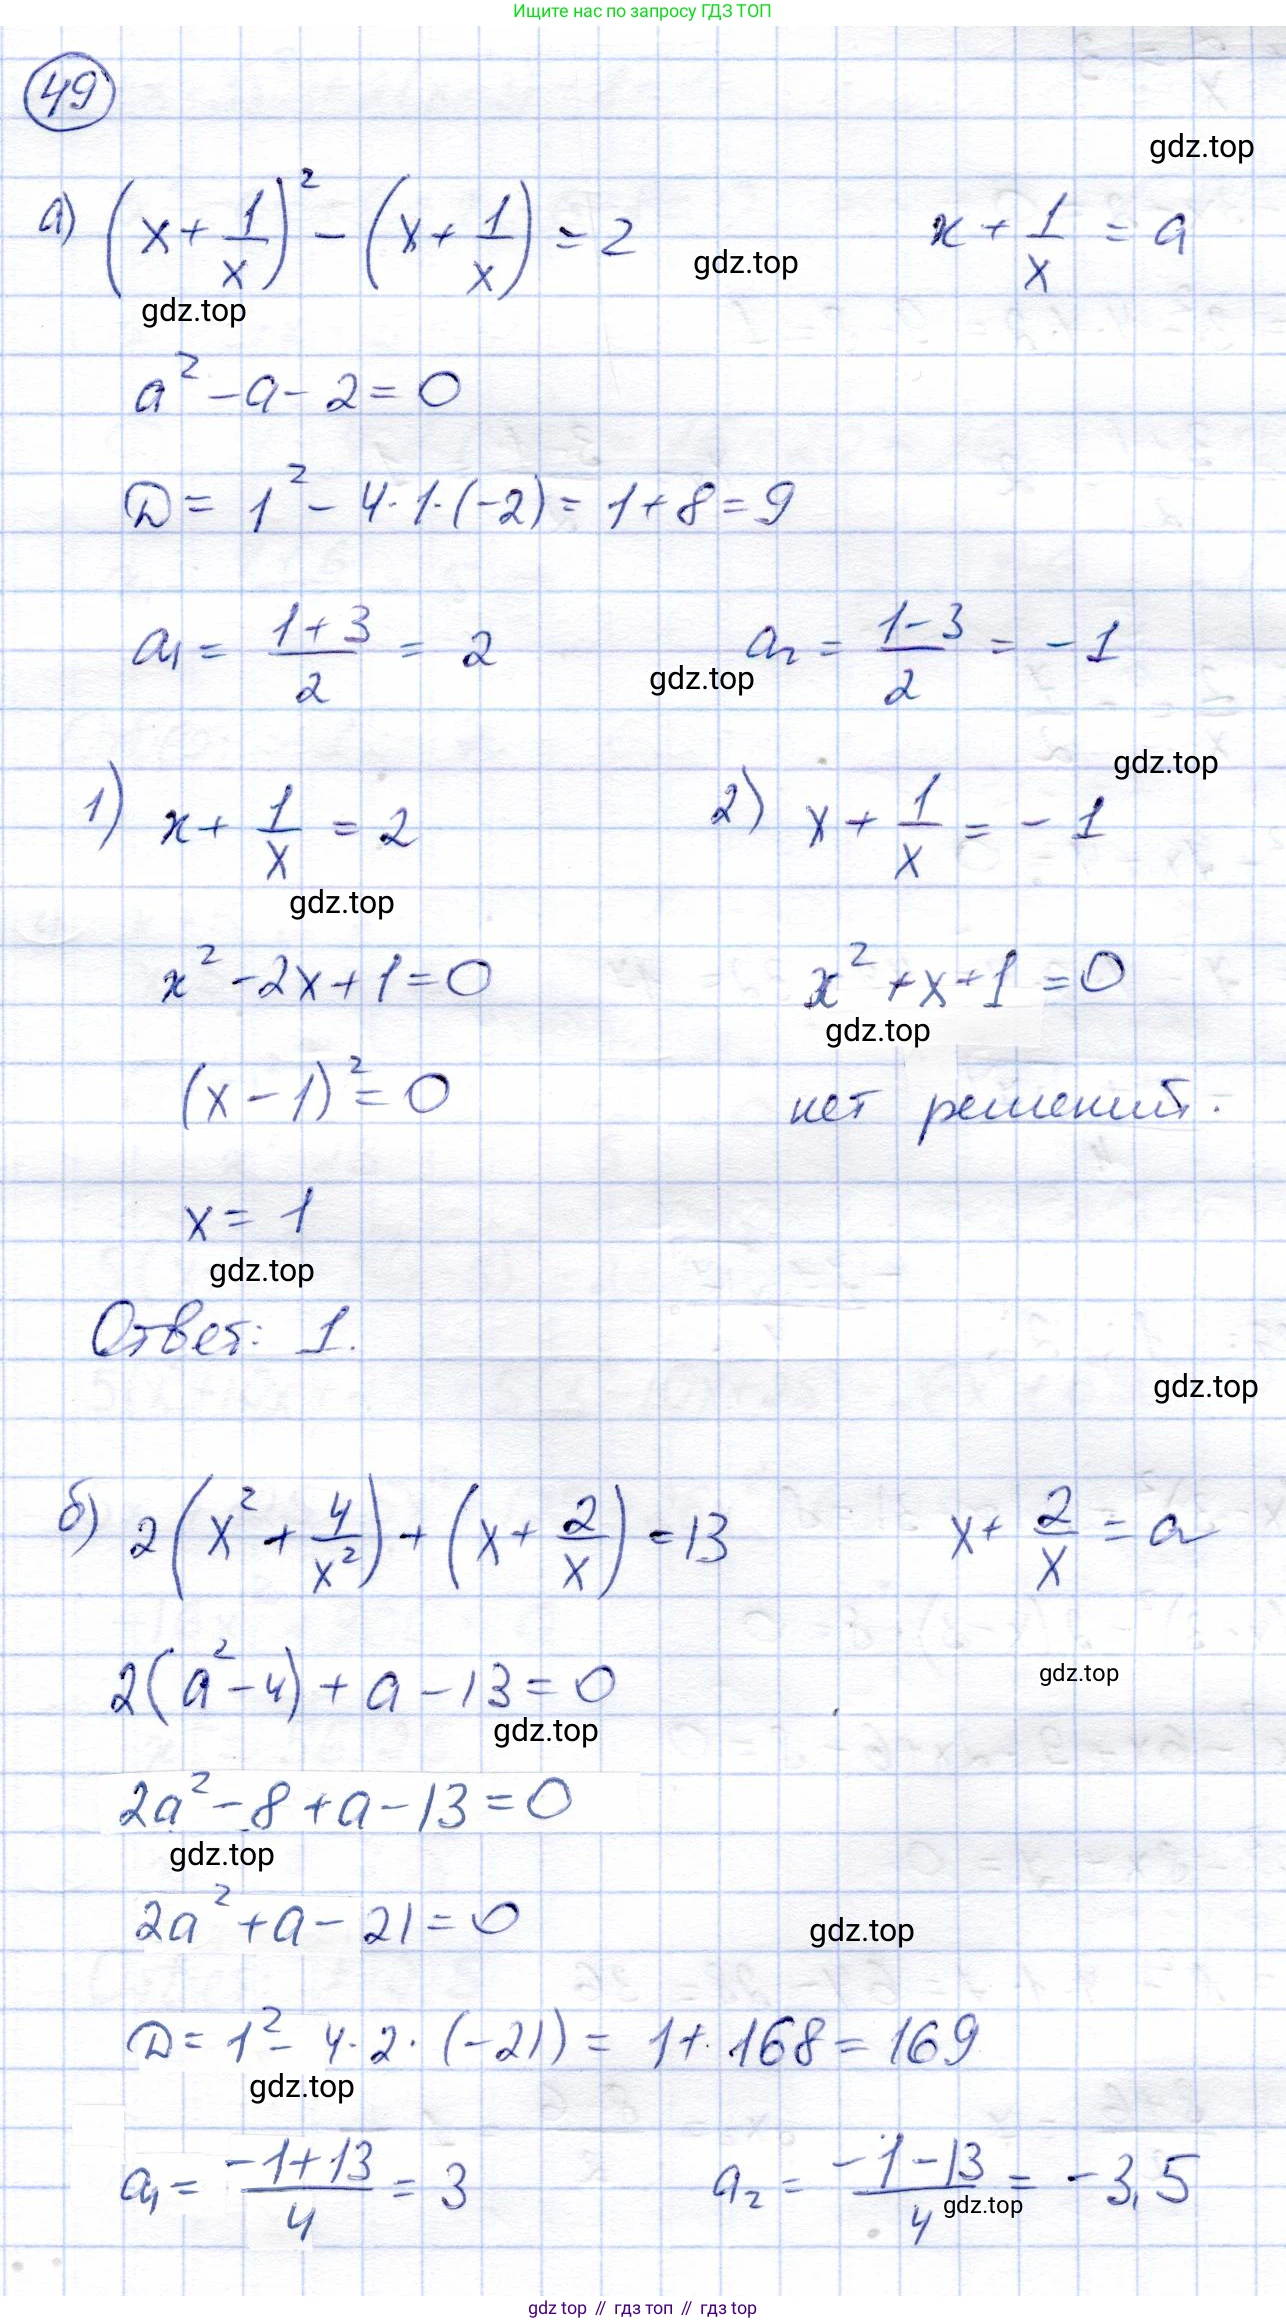 Ищите нас по запросу ГДЗ ТОП
49
gdz.top
а) (x + 1/x)² - (x + 1/x) = 2    x + 1/x = a
gdz.top
gdz.top
a² - a - 2 = 0
D = 1² - 4·1·(-2) = 1 + 8 = 9
a₁ = (1+3)/2 = 2    a₂ = (1-3)/2 = -1
gdz.top
gdz.top
1) x + 1/x = 2    2) x + 1/x = -1
gdz.top
x² - 2x + 1 = 0    x² + x + 1 = 0
gdz.top
(x - 1)² = 0    нет решений.
x = 1
gdz.top
Ответ: 1.
gdz.top
б) 2(x² + 4/x²) + (x + 2/x) = 13    x + 2/x = a
2(a² - 4) + a - 13 = 0
gdz.top
gdz.top
2a² - 8 + a - 13 = 0
gdz.top
2a² + a - 21 = 0
gdz.top
D = 1² - 4·2·(-21) = 1 + 168 = 169
gdz.top
a₁ = (-1+13)/4 = 3    a₂ = (-1-13)/4 = -3,5
gdz.top
gdz top // гдз топ // гдз top